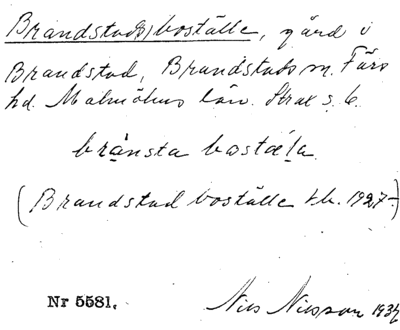 Brandstad(s) boställe, gård i
Brandstad, Brandstads sn. Färs
hd. Malmöhus län. Strax s. k.
bränsta bostäla
(Brandstad boställe tk. 1927-)
Nr 5581. Nils Nilsson 1934